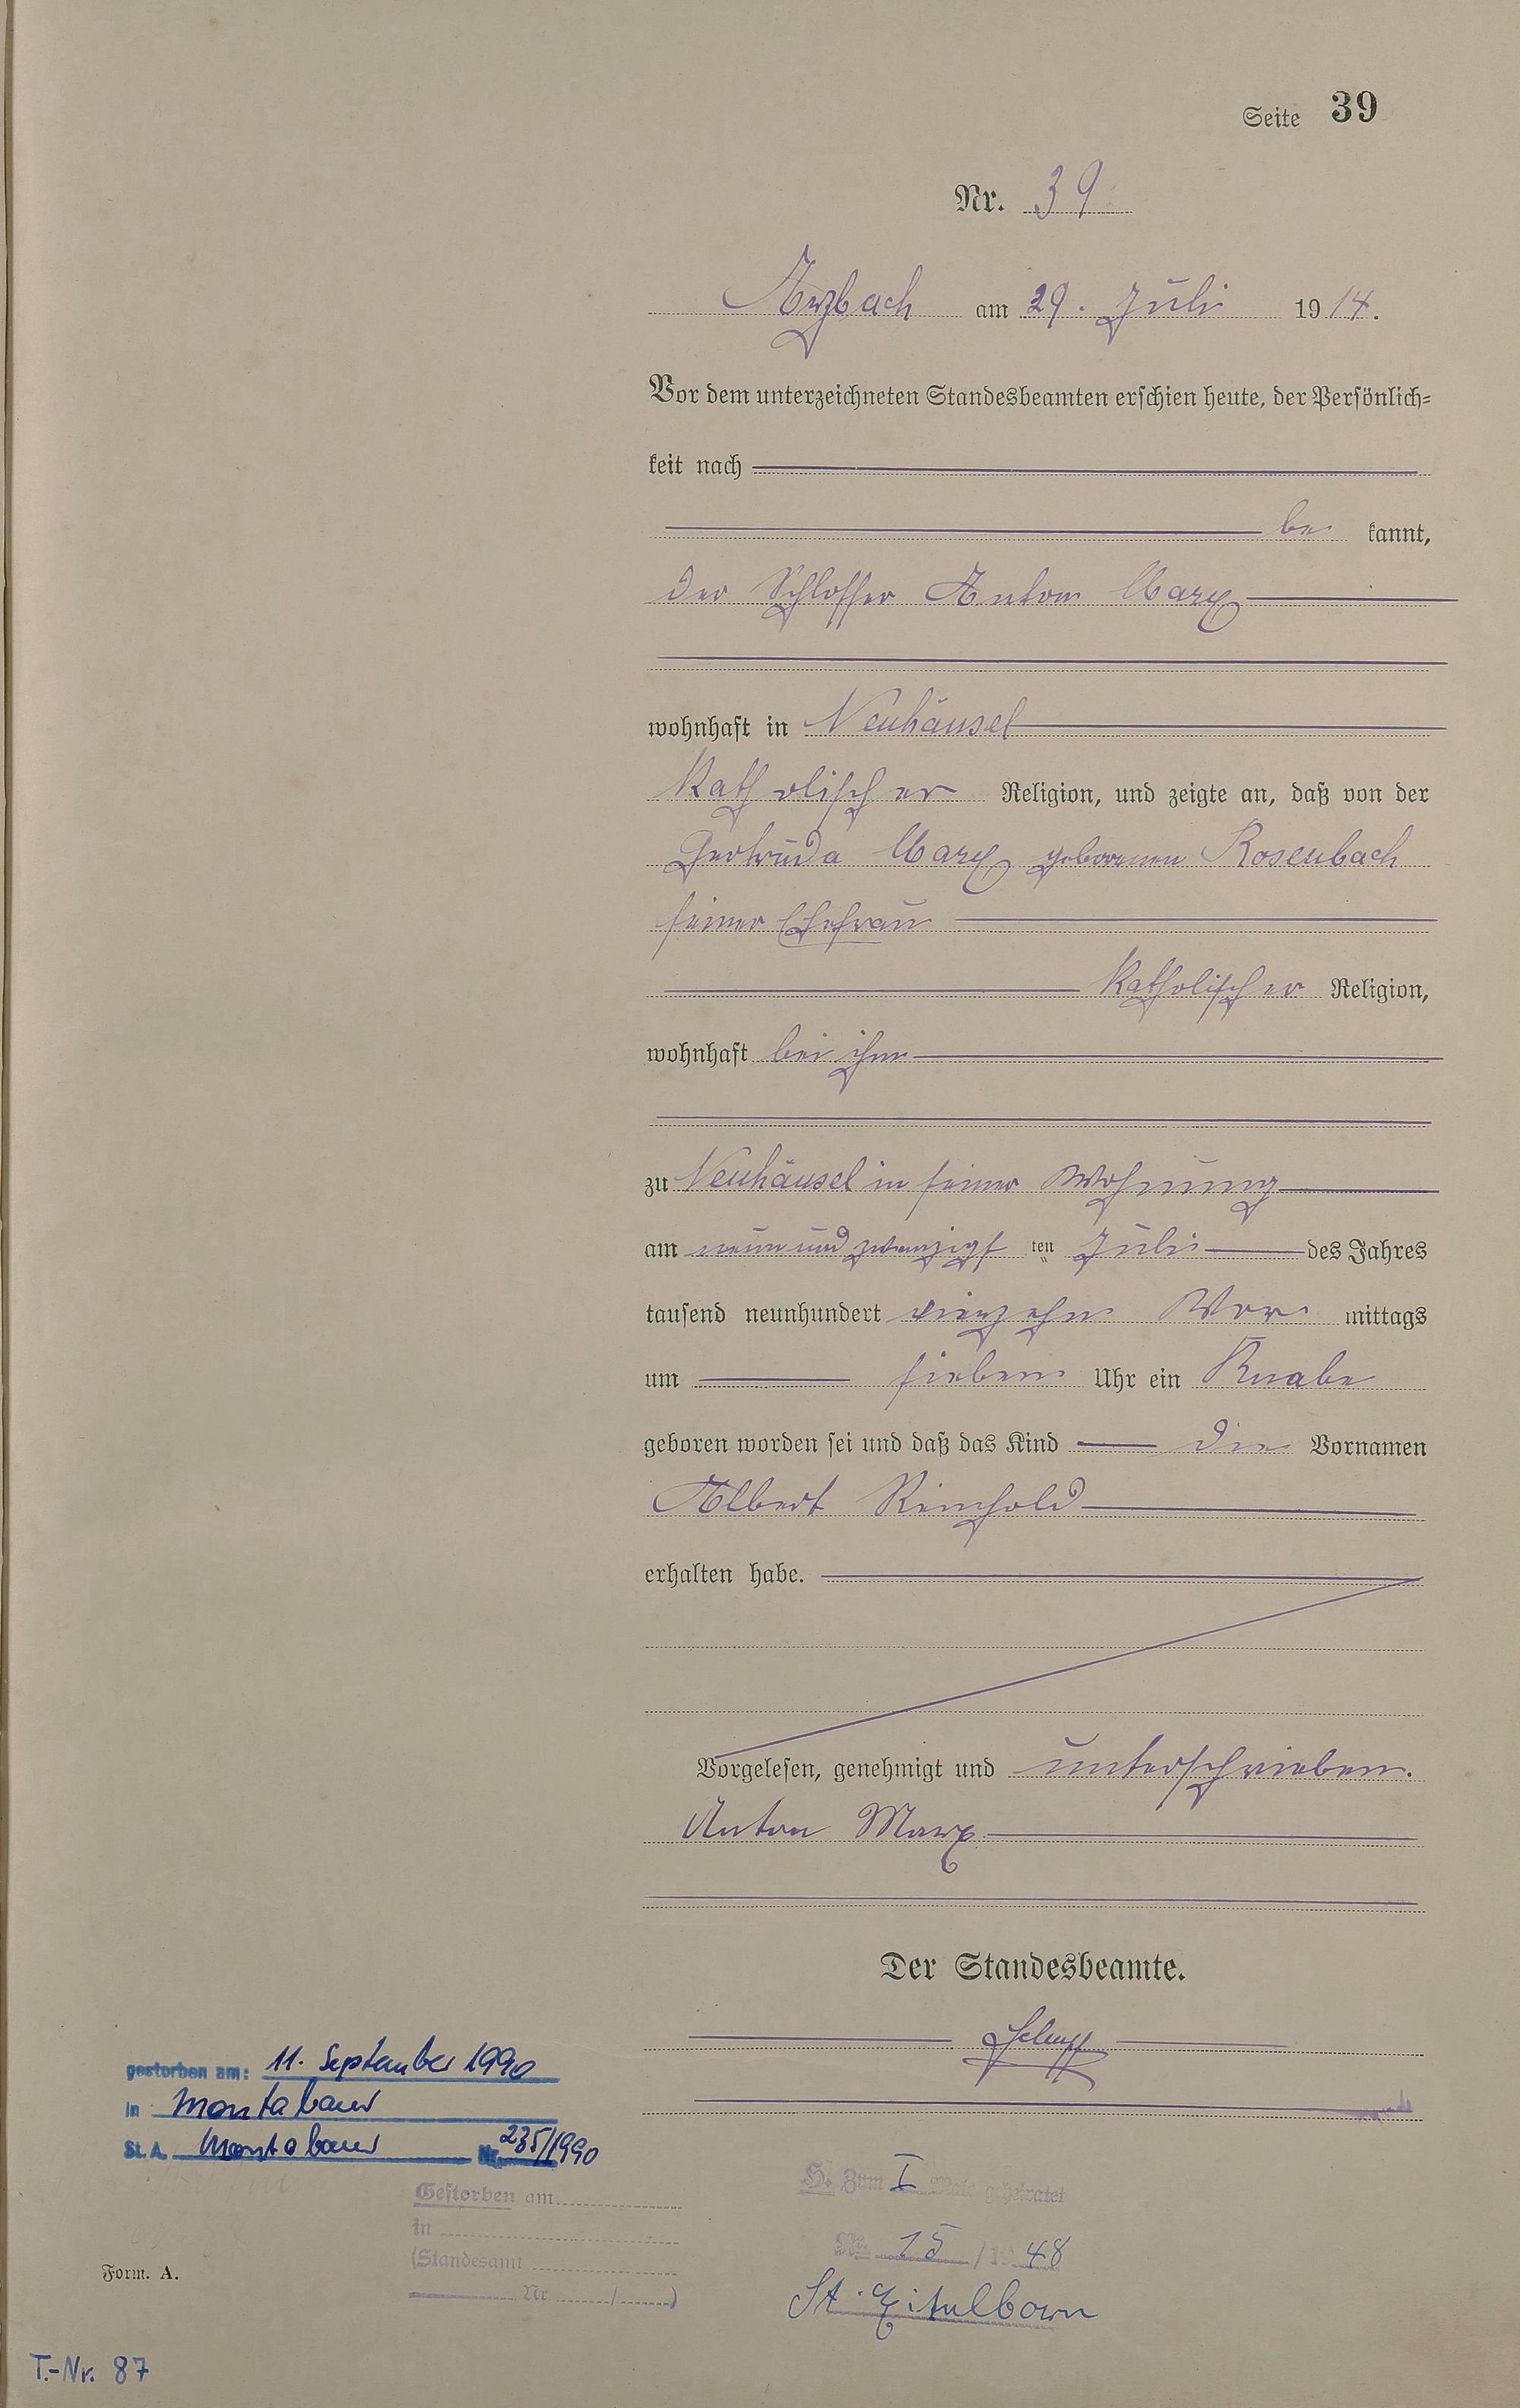 Seite 39
Nr. 39
Arzbach am 29. Juli 1914.
Vor dem unterzeichneten Standesbeamten erschien heute, der Persönlich-
keit nach
be kannt,
der Schlosser Anton Marx
wohnhaft in Neuhäusel
katholischer Religion, und zeigte an, daß von der
Gertruda Marx geborenen Rosenbach
seiner Ehefrau
katholischer Religion,
wohnhaft bei ihm
zu Neuhäusel in seiner Wohnung
am neunundzwanzigsten Juli des Jahres
tausend neunhundert vierzehn Vor mittags
um sieben Uhr ein Knabe
geboren worden sei und daß das Kind die Vornamen
Albert Reinhold
erhalten habe.
Vorgelesen, genehmigt und unterschrieben.
Anton Marx
Der Standesbeamte.
gestorben am: 11. September 1990
in Montabaur
St. A. Montabaur Nr. 235/1990
H. Zum I Male geheiratet
Gestorben am
in
Nr. 15 / 1948
(Standesamt
Nr. / )
St. Eitelborn
Form. A.
T.-Nr. 87